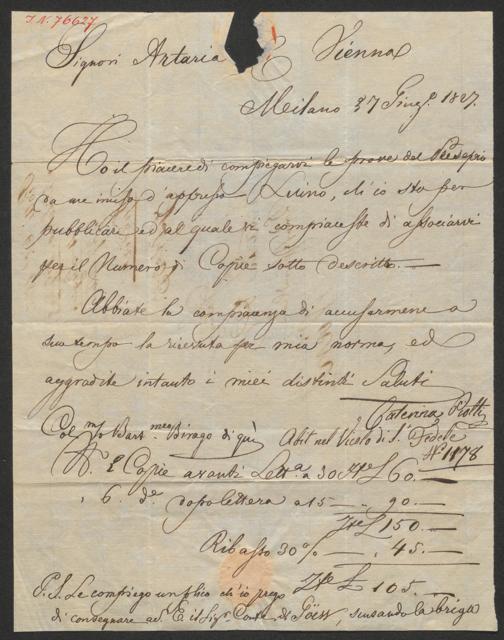 I.N. 76627
Signori Artaria C Vienna
Milano 27 Giug.o 1827.
Ho il piacere di compiegarvi le prove del Presepio
da me inciso d'appresso Luino, ch'io sto per
pubblicare ed al quale vi compiaceste di associarvi
per il Numero di Copie sotto descritto.—
Abbiate la compiacenza di accusarmene a
suo tempo la ricevuta per mia norma, ed
aggradite intanto i miei distinti Saluti
Caterina Piotti
Col m/o Bart.meo Birago di qui Abit nel Vicolo di S. Fedele
N. 1178
N. 2 Copie avanti Lett.a a 30 £ 60.—
, 6. de dopo lettera a 15 — 90.—
£ 150.—
Ribasso 30% — , 45.—
£ 105.—
P.S. Le compiego un plico ch'io prego
di consegnare a S.E il Sig.r Conte di Göess, scusando la briga